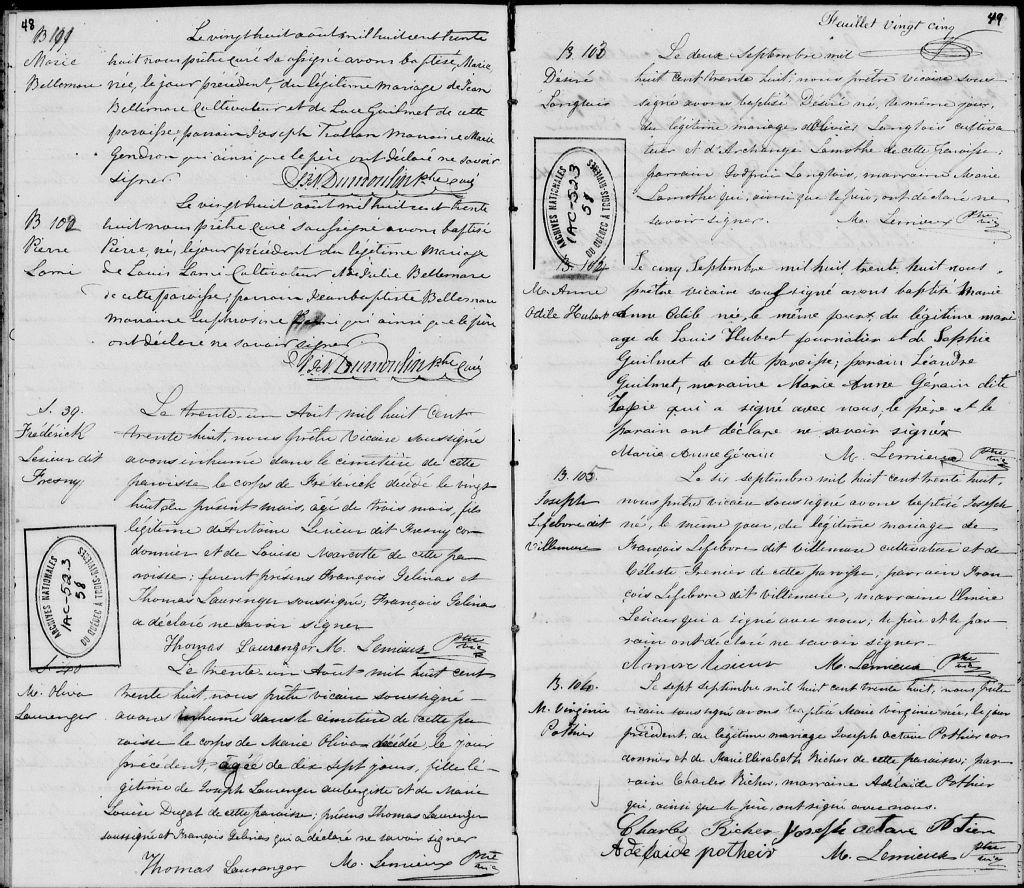 48
B 101
Marie
Bellemare
Le vingt huit aout mil huit cent trente
huit nous prêtre curé soussigné avons baptisé Marie
née, le jour précédent, du légitime mariage de Jean
Bellemare Cultivateur et de Luce Guilmet de cette
paroisse parrain Joseph Trahan marraine Marie
Gendron qui ainsi que le père ont déclaré ne savoir
signer
S. N. Dumoulin Ptre Curé
B 102
Pierre
Lami
Le vingt huit août mil huit cent trente
huit nous prêtre curé soussigné avons baptisé
Pierre né, le jour précédent du légitime mariage
de Louis Lami Cultivateur & de Julie Bellemare
de cette paroisse; parrain Jean baptiste Bellemare
maraine Euphrosine Lami qui ainsi que le père
ont déclaré ne savoir signer
S. N. Dumoulin Ptre Curé
S. 39.
Frédérick
Lesieur dit
Fresny
Le trente-un Août mil huit cent
trente huit, nous prêtre vicaire soussigné
avons inhumé dans le cimetière de cette
paroisse le corps de Frédérick décédé le vingt
huit du présent mois, âgé de trois mois, fils
légitime de Antoine Lesieur dit Fresny cor-
donnier et de Louise Marcotte de cette pa-
roisse; furent présens François Gelinas et
Thomas Laurenger soussigné, François Gelinas
a déclaré ne savoir signer
Thomas Lauranger M. Lemieux Ptre Vic
ARCHIVES NATIONALES
1AC-523
58
DU QUÉBEC À TROIS-RIVIÈRES
S. 40
M. Oliva
Laurenger
Le trente un Août mil huit cent
trente huit, nous prêtre vicaire soussigné
avons inhumé dans le cimetière de cette pa-
roisse le corps de Marie Oliva décédée, le jour
précédent, âgée de dix sept jours, fille lé-
gitime de Joseph Laurenger aubergiste et de Marie
Louise Dugat de cette paroisse; présens Thomas Laurenger
soussigné et François Gelinas qui a déclaré ne savoir signer
Thomas Lauranger M. Lemieux Ptre Vic
Feuillet vingt cinq
49
B. 103
Désiré
Langlois
Le deux Septembre mil
huit cent trente huit, nous prêtre vicaire sous-
signé avons baptisé Désiré né, le même jour,
du légitime mariage d'Olivier Langlois cultiva-
teur et d'Archange Lamothe de cette paroisse;
parrain Godfroi Langlois, marraine Marie
Lamothe qui, ainsi que le père, ont déclaré ne
savoir signer. M. Lemieux Ptre Vic
ARCHIVES NATIONALES
1AC-523
58
DU QUÉBEC À TROIS-RIVIÈRES
B. 104
M. Anne
Odile Hubert
Le cinq Septembre mil huit trente huit nous
prêtre vicaire soussigné avons baptisé Marie
Anne Odile née, le même jour, du légitime mari-
age de Louis Hubert journalier et de Sophie
Guilmet de cette paroisse; parain Léandre
Guilmet, maraine Marie Anne Gérain dite
qui a signé avec nous, le père et le
parain ont déclaré ne savoir signer
Marie Anne Gérain M. Lemieux Ptre Vic
B. 105
Joseph
Lefebvre dit
Villemure
Le six septembre mil huit cent trente huit,
nous prêtre vicaire soussigné avons baptisé Joseph
né, le même jour, du légitime mariage de
François Lefebvre dit Villemure cultivateur et de
Céleste Grenier de cette paroisse; parrain Fran-
çois Lefebvre dit Villemure, marraine
Lesieur qui a signé avec nous; le père et le par-
rain ont déclaré ne savoir signer
Lesieur M. Lemieux Ptre Vic
B. 106.
M. Virginie
Pothier
Le sept septembre mil huit cent trente huit, nous prêtre
vicaire soussigné avons baptisé Marie Virginie née, le jour
précédent, du légitime mariage Joseph octave Pothier cor-
donnier et de Marie Elisabeth Richer de cette paroisse; par-
rain Charles Richer, marraine Adélaide Pothier
qui, ainsi que le père, ont signé avec nous.
Charles Richer Joseph octave
Adelaide potheir M. Lemieux Ptre Vic